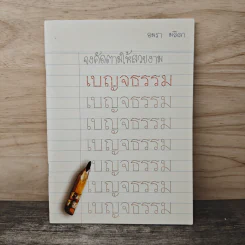 จงคัดลายมือให้สวยงาม
เบญจธรรม
เบญจธรรม
เบญจธรรม
เบญจธรรม
เบญจธรรม
เบญจธรรม
เบญจธรรม